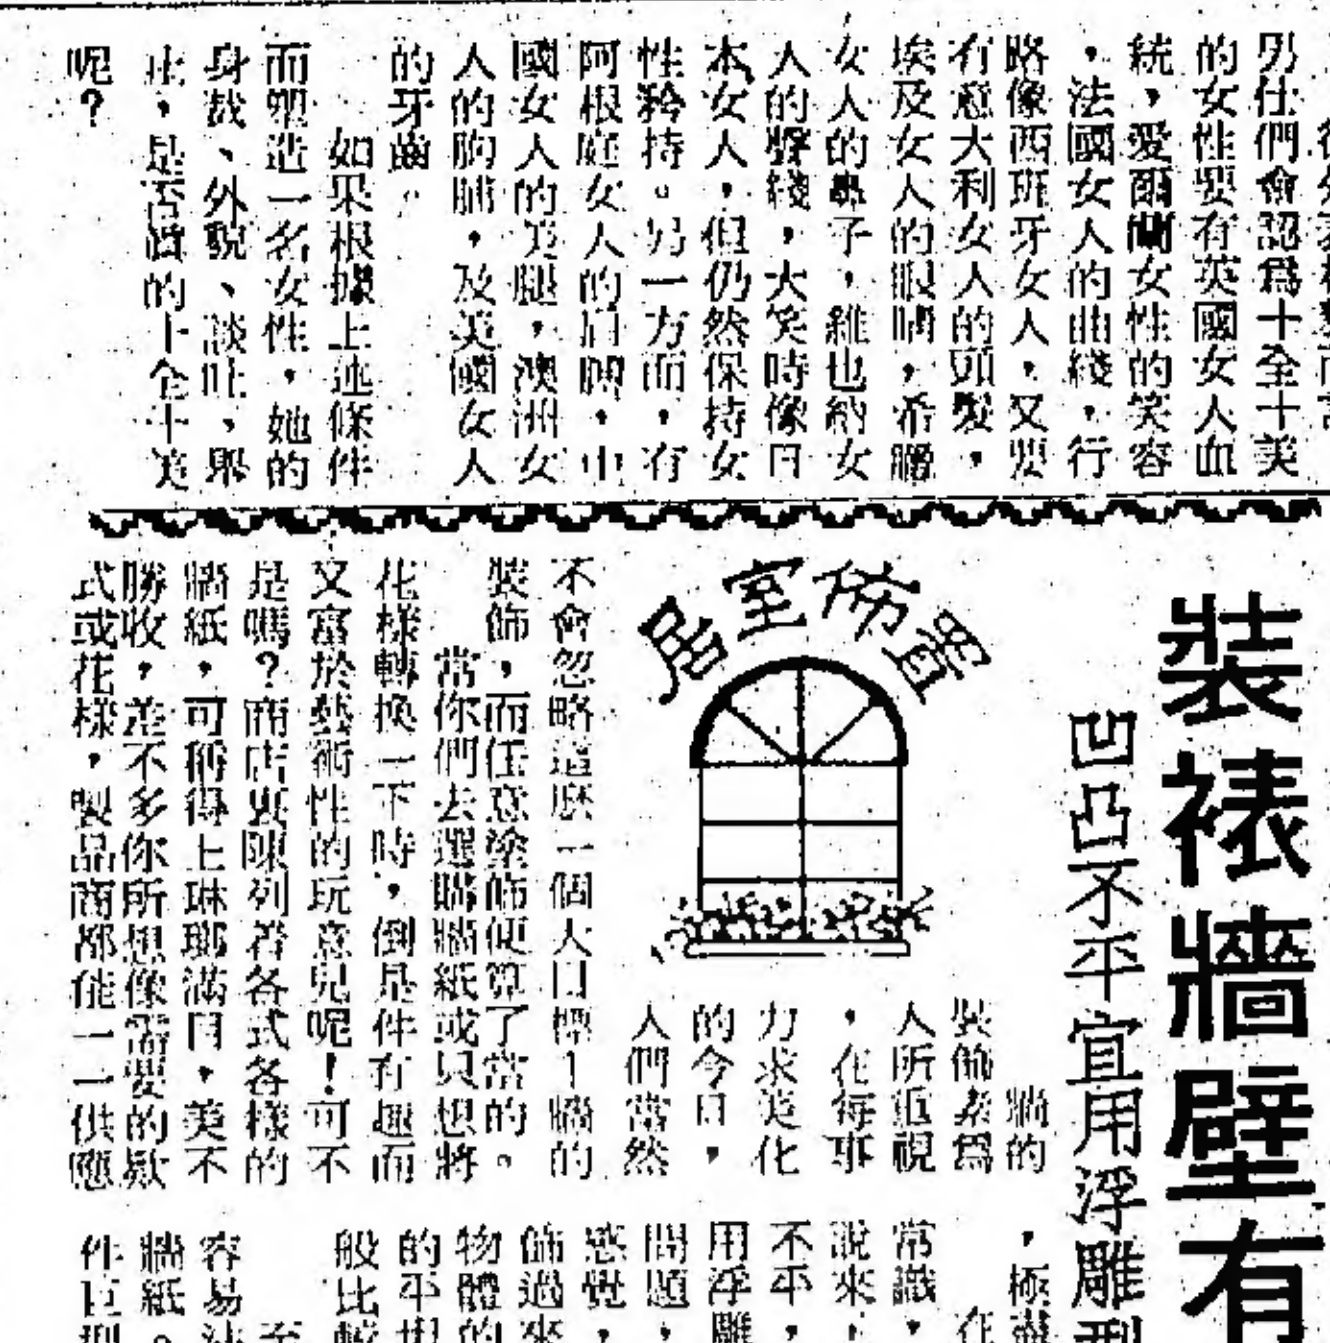 男仕們會認爲十全十美
的女性要有英國女人血
統,愛爾蘭女性的笑容
,法國女人的曲綫,行
路像西班牙女人,又要
有意大利女人的頭髮,
埃及女人的眼睛,希臘
女人的鼻子,維也納女
人的聲綫,大笑時像日
本女人,但仍然保持女
性矜持。另一方面,有
阿根庭女人的肩膊,中
國女人的美腿,澳洲女
人的胸脯,及美國女人
的牙齒。
如果根據上述條件
而塑造一名女性,她的
身裁、外貌、談吐,舉
止,是否眞的十全十美
呢?
裝裱牆壁有
凹凸不平宜用浮雕型
居室佈置
牆的
裝飾素爲
人所重視
,在每事
力求美化
的今日,
人們當然
不會忽略這麽一個大目標——牆的
裝飾,而任意塗飾便算了當的。
當你們去選購牆紙或只想將
花樣轉換一下時,倒是件有趣而
又富於藝術性的玩意兒呢!可不
是嗎?商店裏陳列着各式各樣的
牆紙,可稱得上琳瑯滿目,美不
勝收,差不多你所想像需要的欵
式或花樣,製品商都能一一供應
,極盡
在
常識,
說來,
不平,
用浮雕
問題,
感覺,
飾過來
物體的
的平坦
般比較
至
容易法
牆紙。
件巨型